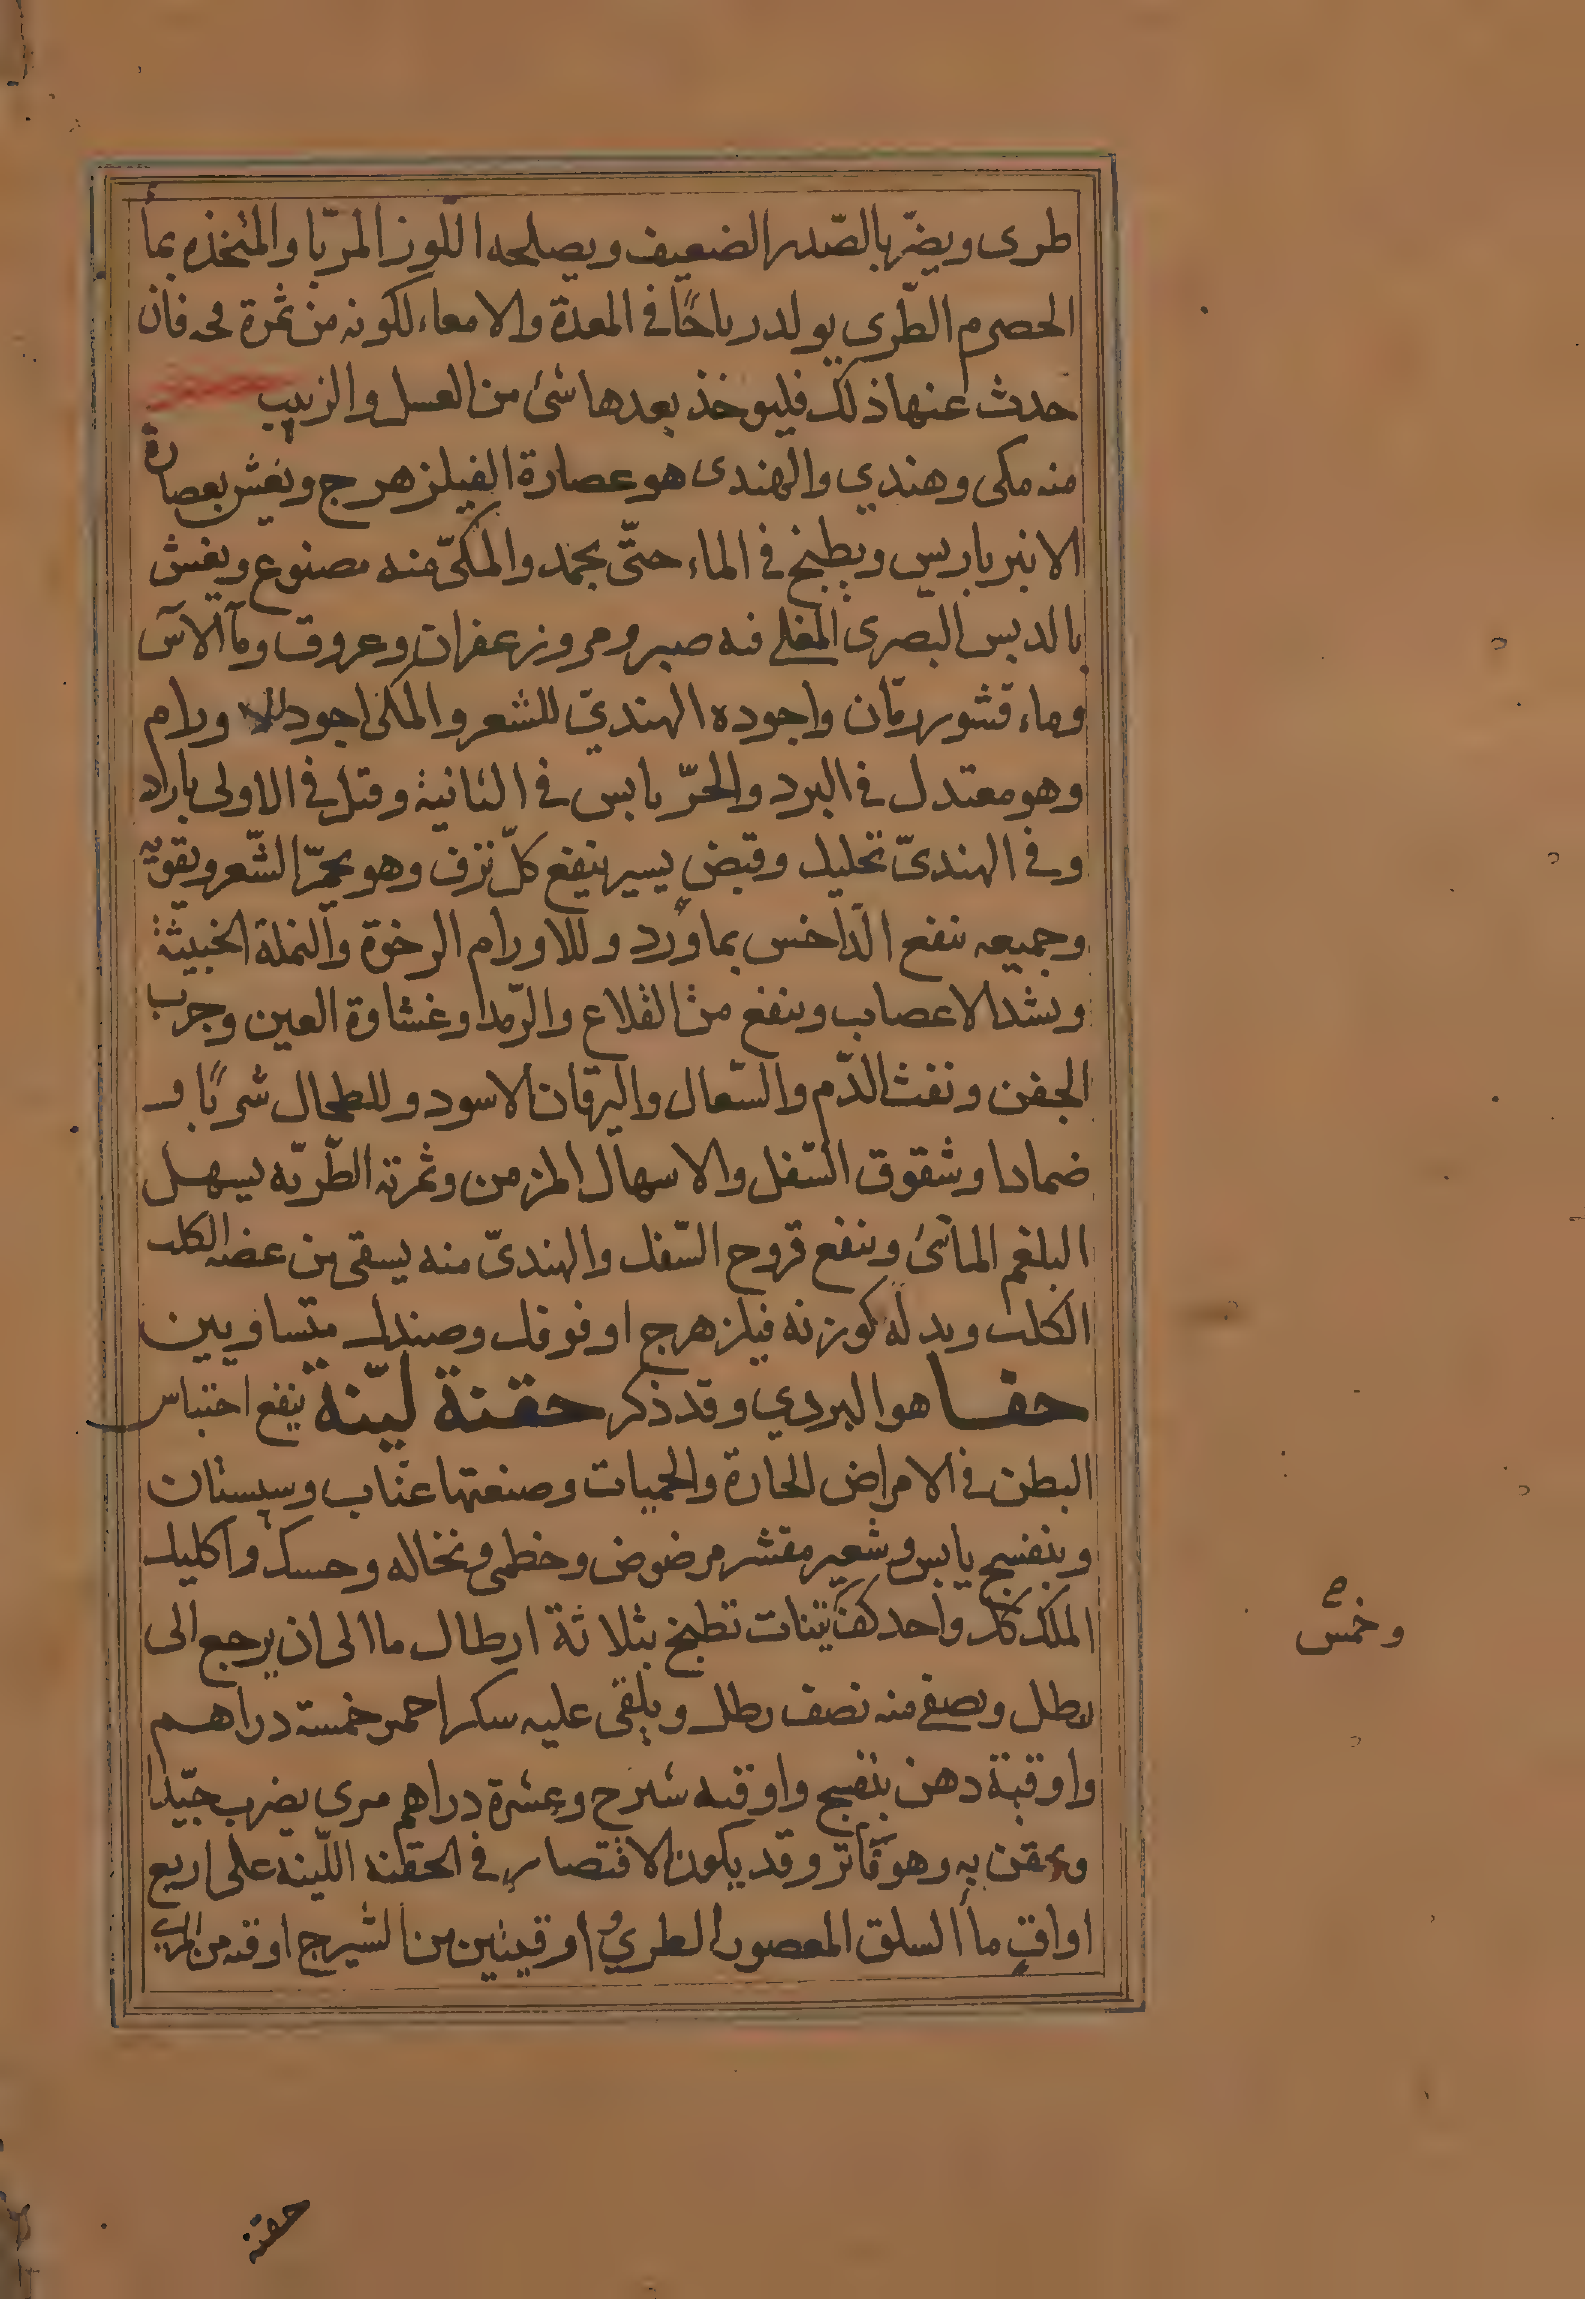 طرى ويضرّ بالصّدر الضعيف ويصلحه اللّوز المربّا والمتخذه بمأ
الحصرم الطّرى يولد رياحًا فى المعدة والامعاء لكونه من ثمرة فجه فان
حدث عنها ذلك فليوخذ بعدها شئ من العسل والزبيب
منه مكى وهندي والهندى هو عصارة الفيلزهرج ويغش بعصارة
الانبرباريس ويطبخ فى الماء حتّى يجمد والمكىّ منه مصنوع ويغش
بالدبس البصرى المغلى فيه صبر ومر وزعفران وعروق ومآ الآس
وماء قشور رمّان واجوده الهنديّ للشعر والمكى اجود للاورام
وهو معتدل فى البرد والحرّ يابس فى الثانية وقيل فى الاولى بارد
وفى الهندىّ تحليل وقبض يسير ينفع كلّ نزف وهو يحمّر الشّعر ويقويّه
وجميعه ينفع الدّاخس بماورد وللاورام الرخوة والنملة الخبيثة
ويشد الاعصاب وينفع من القلاع والرّمد وغشاوة العين وجرب
الجفن ونفث الدّم والسّعال واليرقان الاسود وللطحال شربًا و
ضمادا وشقوق السّفل والاسهال المزمن وثمرته الطّريّه يسهل
البلغم المائىّ وينفع قروح السّفل والهندىّ منه يسقى من عضه الكلب
الكلب وبدله كوزنه فيلزهرج او فوفل وصندل متساويين
حفا هو البردي وقد ذكر حقنة ليّنة ينفع احتباس
البطن فى الامراض الحارة والحميات وصنعتها عنّاب وسبستان
وبنفسج يابس وشعير مقشر مرضوض وخطمى ونخاله وحسك واكليل
الملك كل واحد كف تينات تطبخ بثلاثة ارطال ما الى ان يرجع الى
رطل ويصفى منه نصف رطل ويلقى عليه سكر احمر خمسة دراهم
واوقية دهن بنفسج واوقيه شيرج وعشرة دراهم مرى يضرب جيّدا
ويحقن به وهو فاتر وقد يكون الاقتصار فى الحقنه اللّينه على اربع
اواقٍ مأ السلق المعصور الطري واوقيتين من الشيرج اوقيه من المرى
وخمس
حقنة